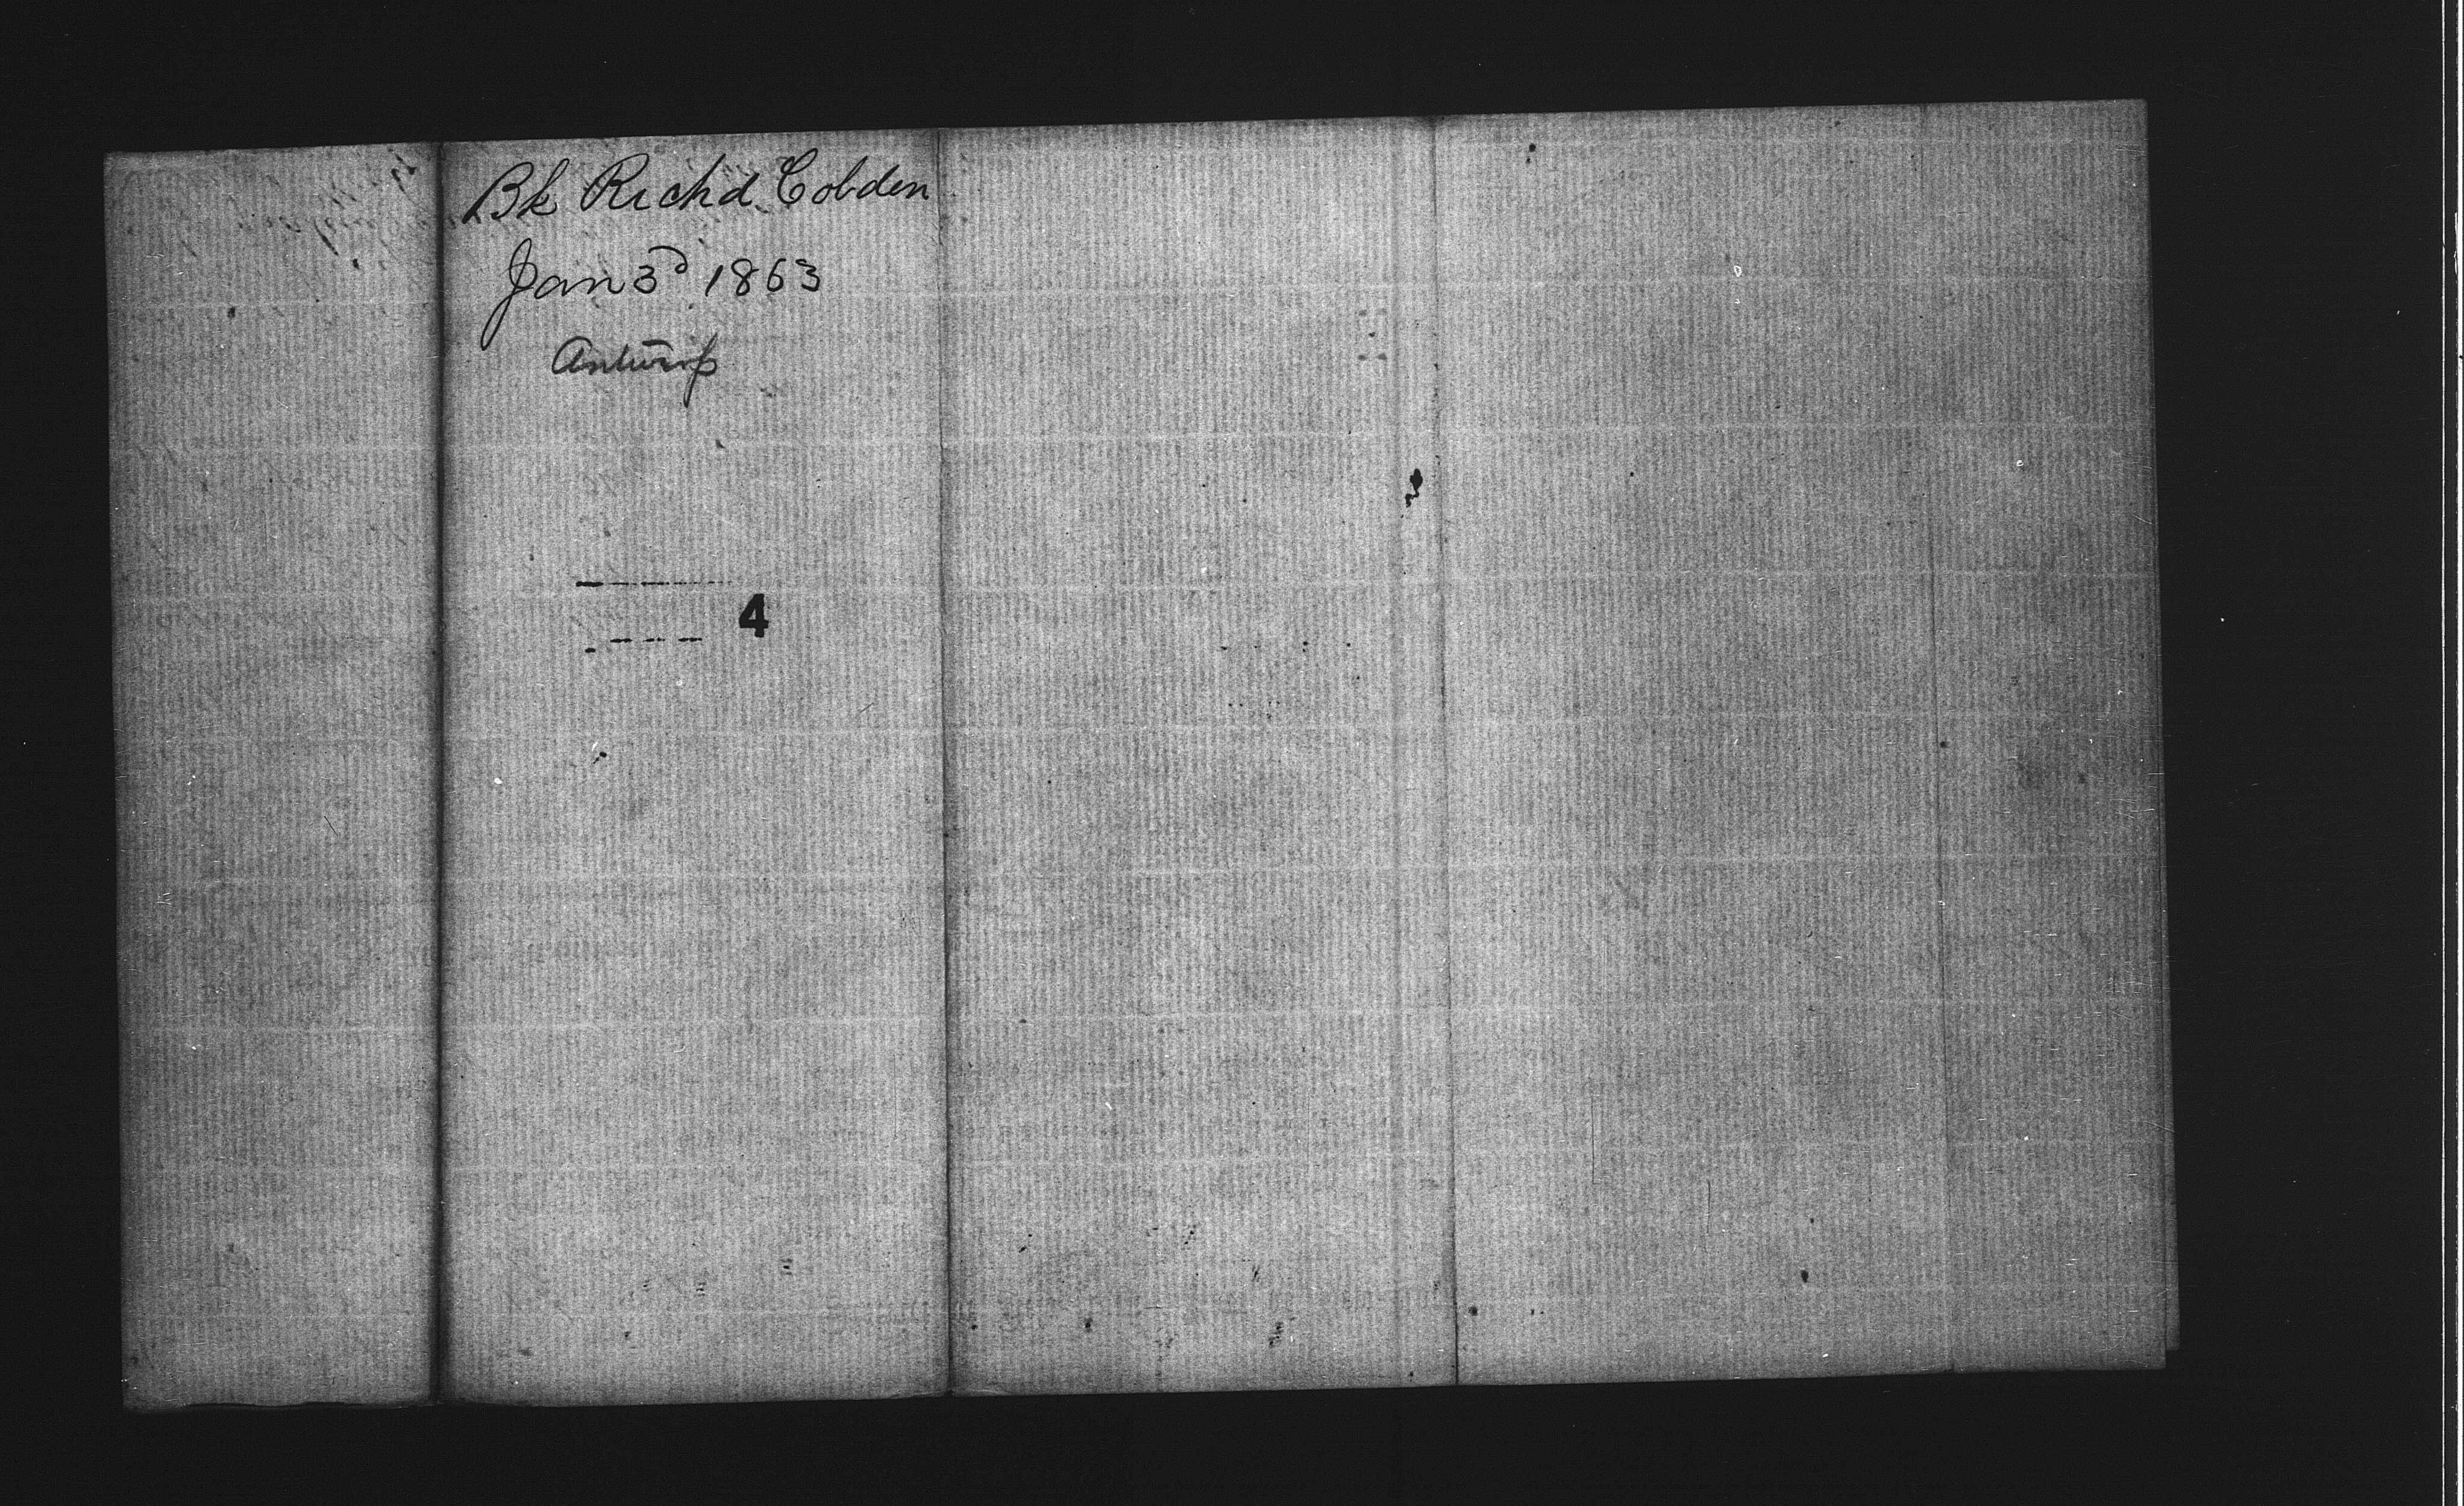 Bk Richd. Cobden
Jan 3d 1863
Antwerp
4